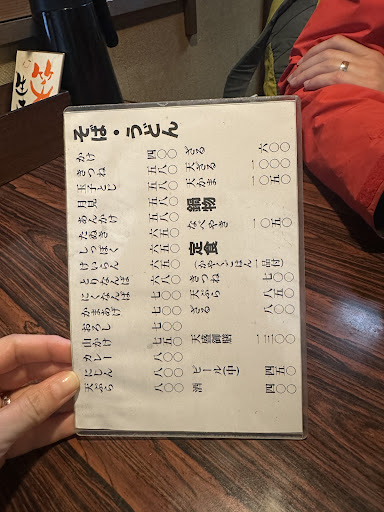 そば・うどん
かけ 四〇〇
きつね 五八〇
玉子とじ 五八〇
月見 五八〇
あんかけ 五八〇
たぬき 六五〇
しっぽく 六五〇
けいらん 六五〇
とりなんば 六八〇
にくなんば 七〇〇
かまあげ 七〇〇
おろし 七〇〇
山かけ 七五〇
カレー 八〇〇
にしん 八〇〇
天ぷら 八〇〇
ざる 六〇〇
天ざる 一〇〇〇
天かま 一〇五〇
鍋物
なべやき 一〇五〇
定食
(かやくごはん一品付)
きつね 七〇〇
天ぷら 八五〇
ざる 八〇〇
天盛御膳 一三〇〇
ビール(中) 四五〇
酒 四〇〇